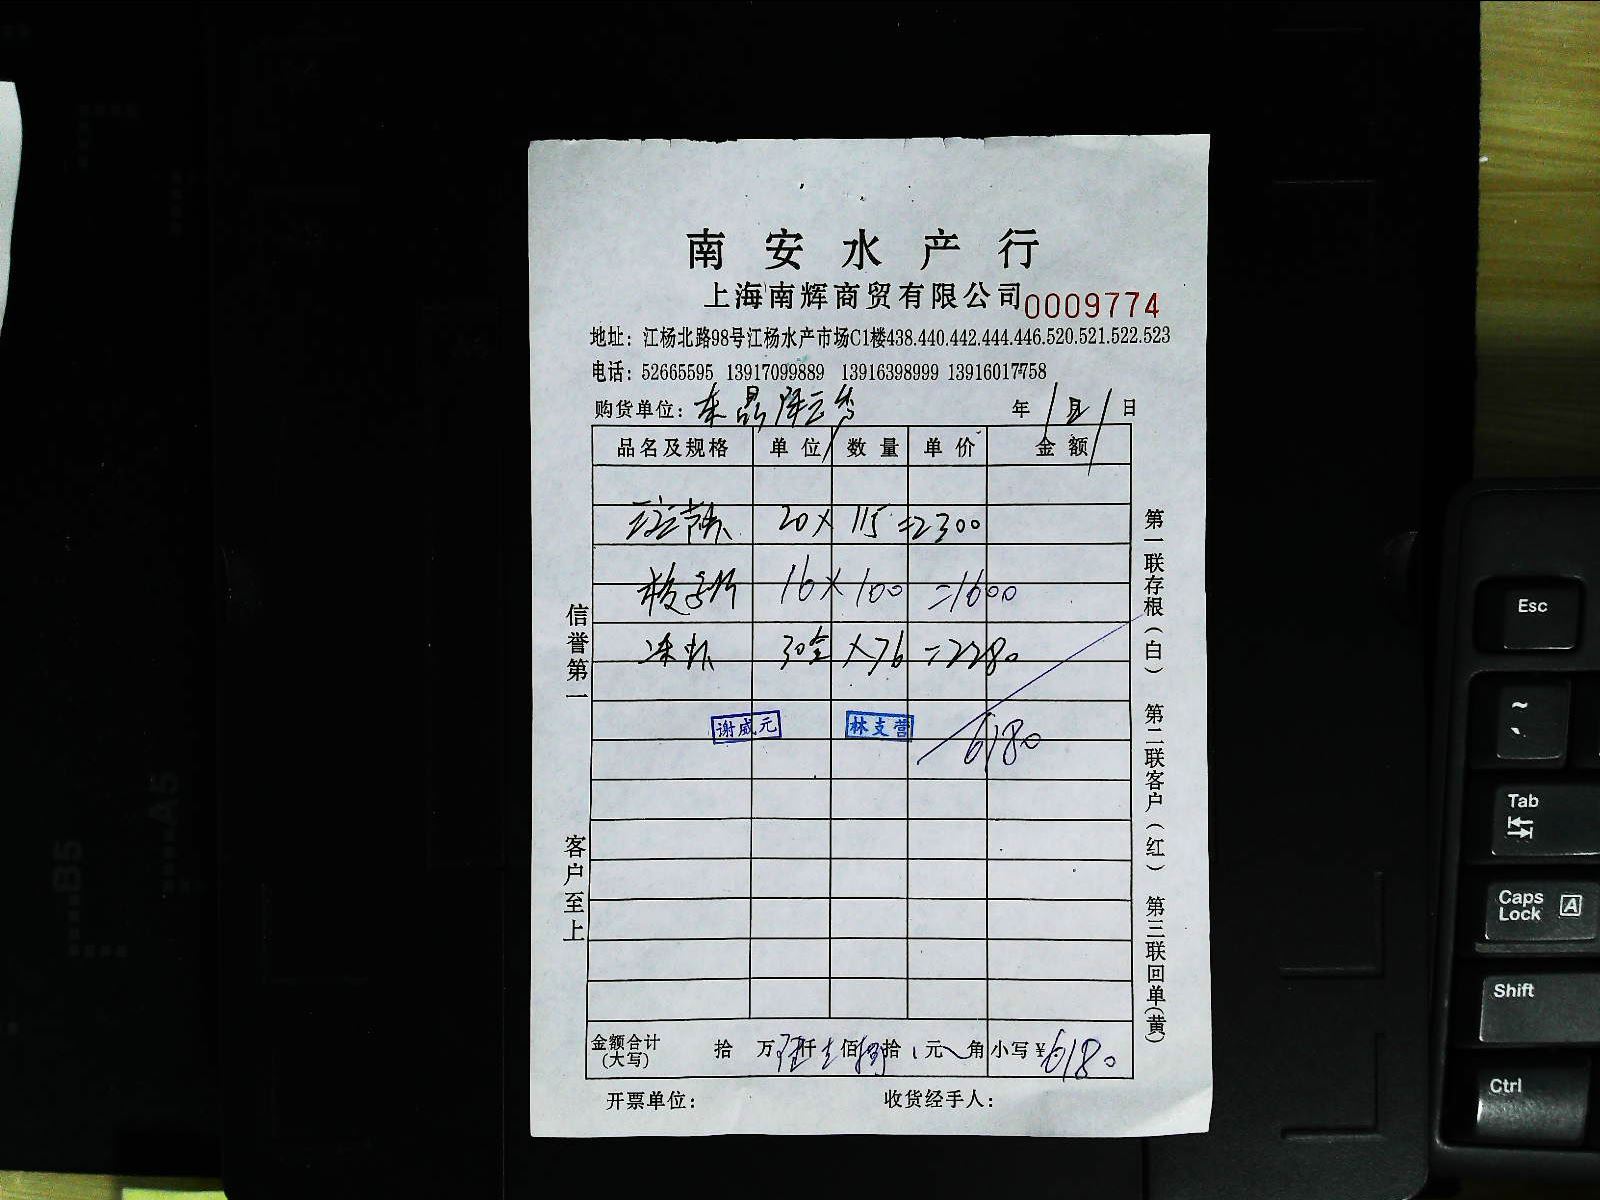 南安水产行
上海南辉商贸有限公司 0009774
地址：江杨北路98号江杨水产市场C1楼438.440.442.444.446.520.521.522.523
电话：52665595 13917099889 13916398999 13916017758
购货单位： 年 1 月 1 日
品名及规格 单位 数量 单价 金额
20 × 115 =2300
16 × 100 =1600
冻虾 30盒 ×76 =2280
谢咸元 林支营 6180
金额合计(大写) 拾 万 陆仟 壹佰 捌拾 元 角 小写¥6180
开票单位： 收货经手人：
信誉第一 客户至上
第一联存根(白) 第二联客户(红) 第三联回单(黄)
Esc
~
`
Tab
Caps Lock A
Shift
Ctrl
B5
A5